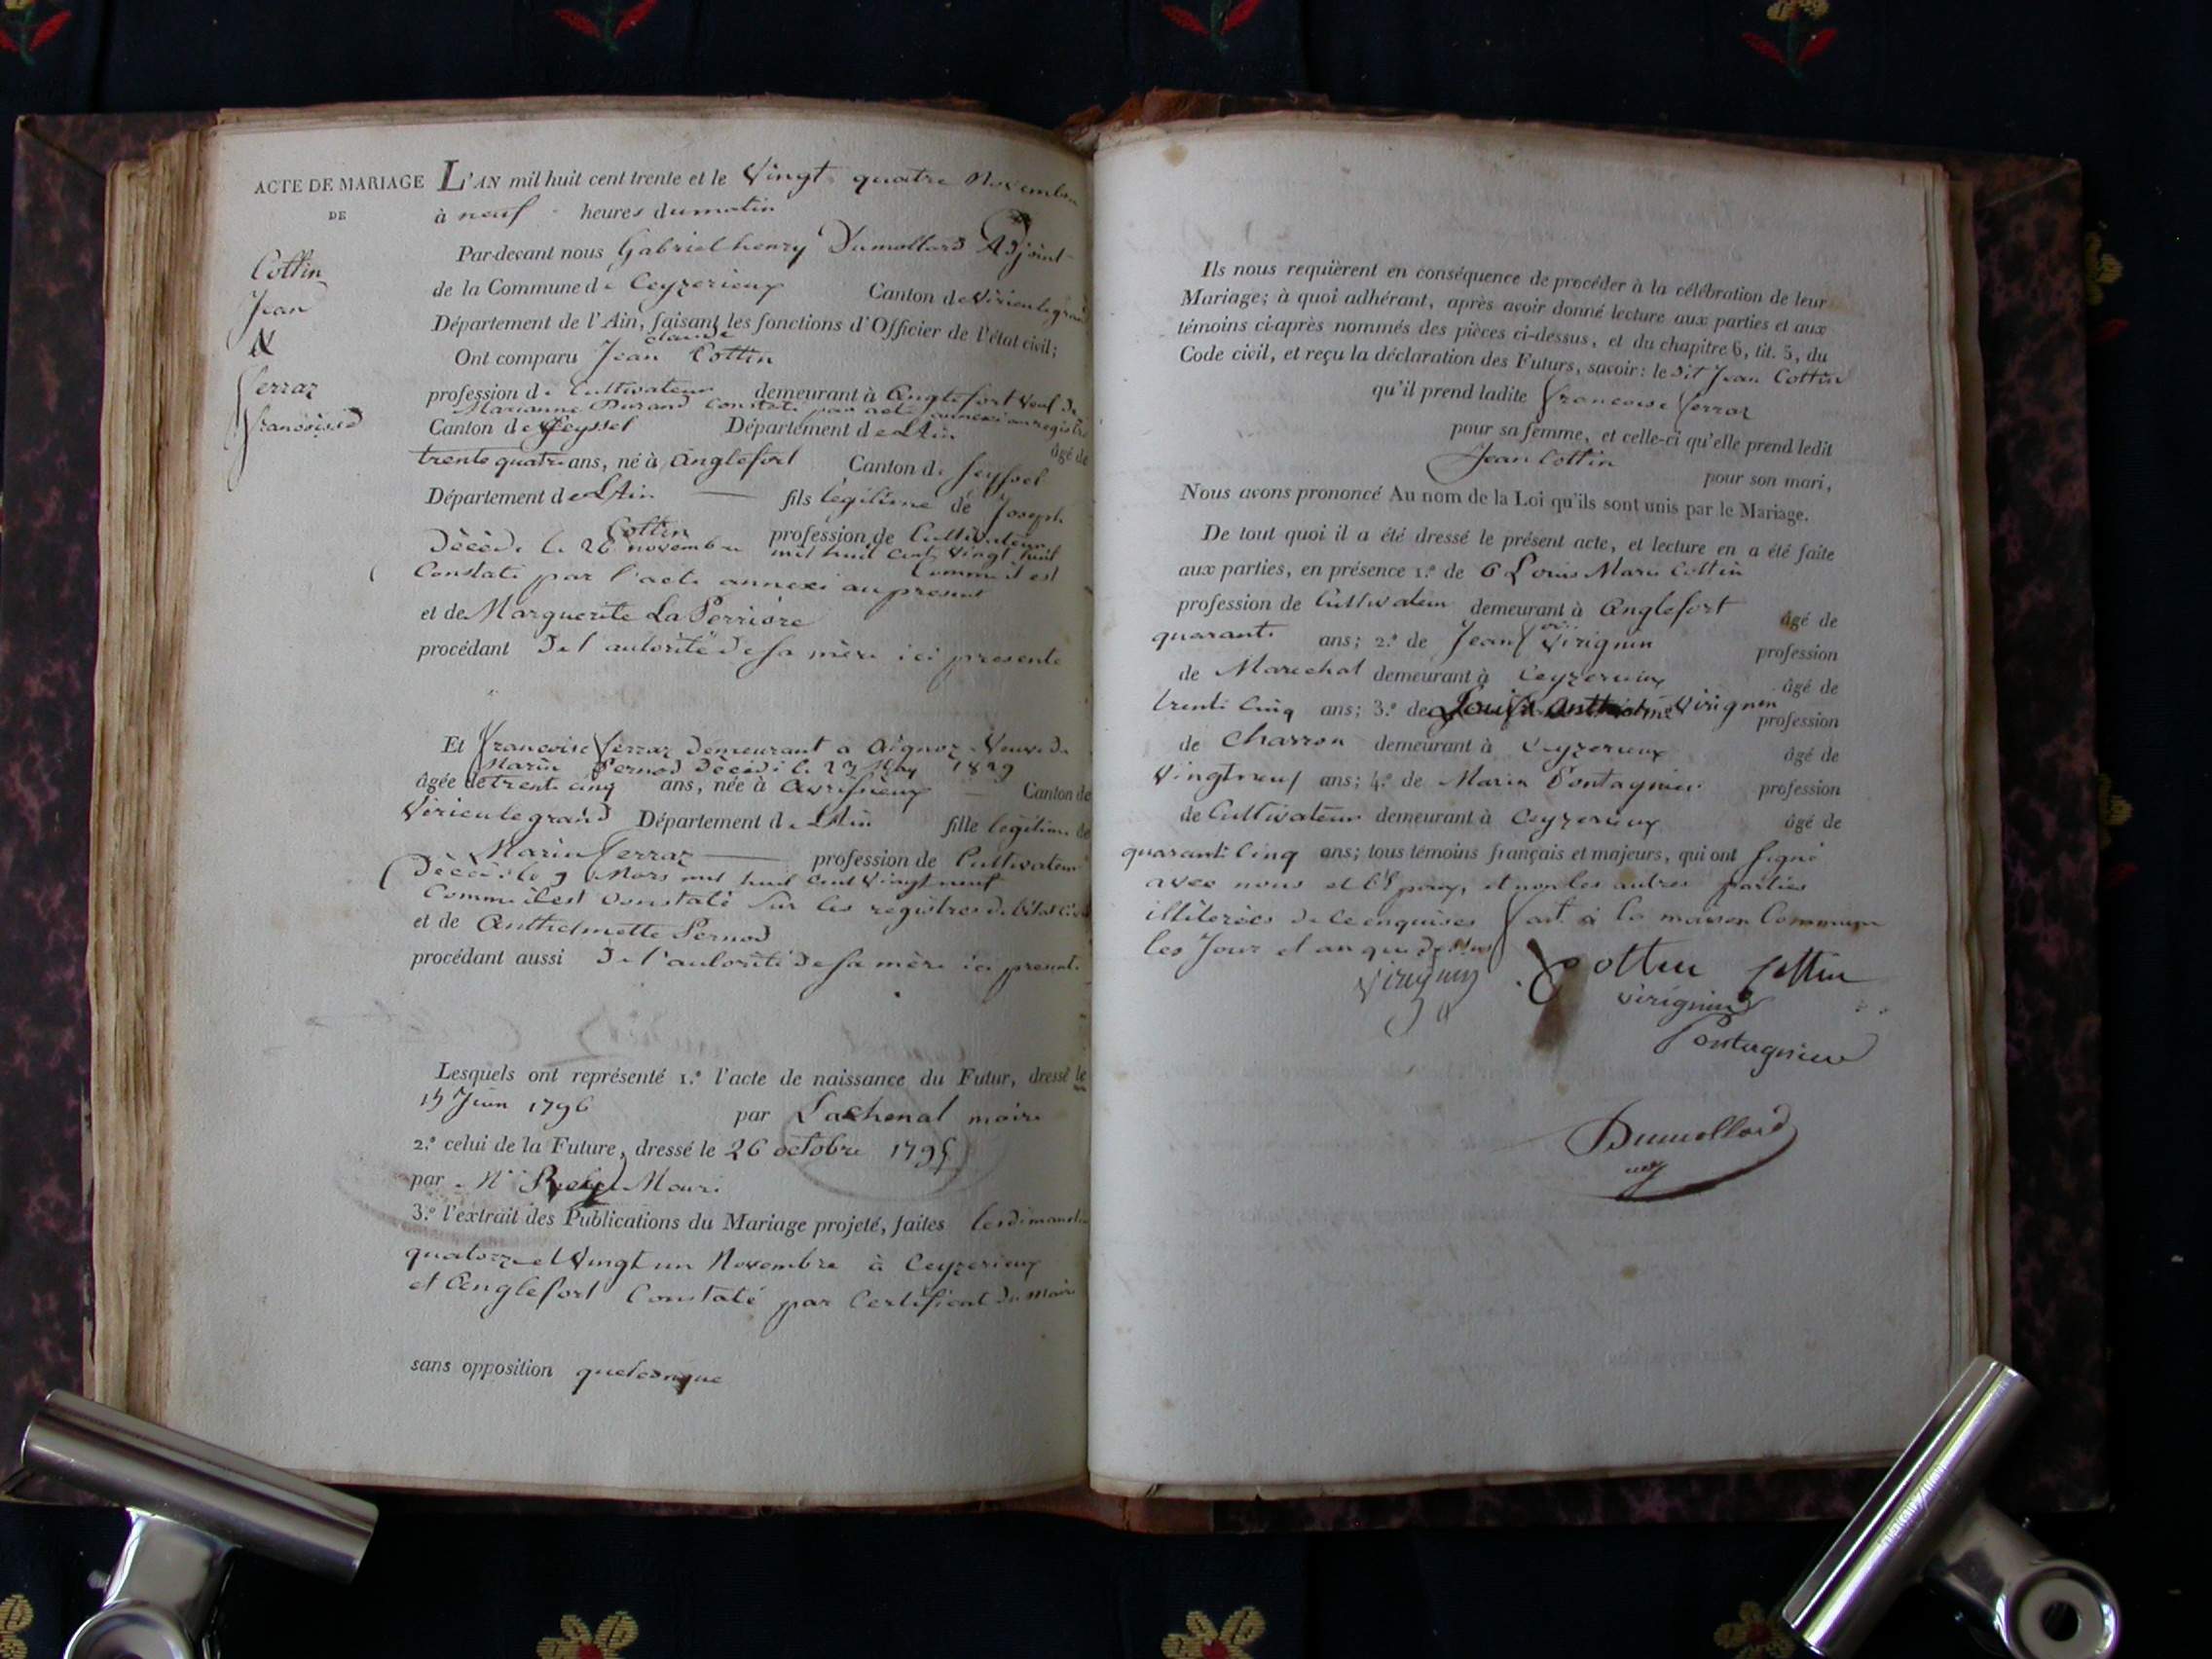 ACTE DE MARIAGE
DE
Cottin
Jean
&
ferraz
francoise
L'AN mil huit cent trente et le Vingt quatre Novembre
à neuf heures du matin
Par-devant nous Gabriel henry Dumollard Adjoint
de la Commune de Ceyzerieux Canton de Virieu le grand
Département de l'Ain, faisant les fonctions d'Officier de l'état civil;
claude
Ont comparu Jean Cottin
profession de Cultivateur demeurant à Anglefort veuf de
Marianne Durand Constaté par acte annexé au registre
Canton de Seyssel Département de LAin âgé de
trente quatre ans, né à Anglefort Canton de Seyssel
Département de LAin fils légitime de Joseph
Cottin profession de Cultivateur
Décédé le 26 novembre mil huit cent vingt huit
Comme il est
Constaté par l'acte annexé au présent
et de Marguerite La Perrière
procédant De l'autorité de sa mère ici presente
Et francoise ferraz demeurant a Aignoz Veuve de
Marin Pernod Décédé le 23 May 1829
âgée de trente cinq ans, née à Avrissieux Canton de
Virieu le grand Département de LAin fille legitime de
Marin ferraz profession de Cultivateur
Décédé le 9 Mars mil huit cent vingt neuf
Comme il est Constaté sur les registres de l'état civil
et de Anthelmette Pernod
procédant aussi De l'autorité de sa mère ici presente
Lesquels ont représenté 1.º l'acte de naissance du Futur, dressé le
15 Juin 1796 par Lachenal maire
2.º celui de la Future, dressé le 26 octobre 1795
par Mr Maire
3.º l'extrait des Publications du Mariage projeté, faites les dimanches
quatorze et Vingt un Novembre à Ceyzerieux
et Anglefort Constaté par Certificat du Maire
sans opposition quelconque
Ils nous requièrent en conséquence de procéder à la célébration de leur
Mariage; à quoi adhérant, après avoir donné lecture aux parties et aux
témoins ci-après nommés des pièces ci-dessus, et du chapitre 6, tit. 5, du
Code civil, et reçu la déclaration des Futurs, savoir: le dit Jean Cottin
qu'il prend ladite francoise ferraz
pour sa femme, et celle-ci qu'elle prend ledit
Jean Cottin pour son mari,
Nous avons prononcé Au nom de la Loi qu'ils sont unis par le Mariage.
De tout quoi il a été dressé le présent acte, et lecture en a été faite
aux parties, en présence 1.º de Louis Marie Cottin
profession de Cultivateur demeurant à Anglefort âgé de
quarante ans; 2.º de Jean Virignin profession
de Marechal demeurant à Ceyzerieux âgé de
trente cinq ans; 3.º de Virignin profession
de Charron demeurant à Ceyzerieux âgé de
Vingt neuf ans; 4.º de Marin Pontagnieu profession
de Cultivateur demeurant à Ceyzerieux âgé de
quarante Cinq ans; tous témoins français et majeurs, qui ont signé
avec nous et l'Epoux, et non les autres parties
illiterées de ce enquises fait à la maison Commune
les Jour et an que dessus
Virignin Cottin Cottin
Virignin
Pontagnieu
Dumollard